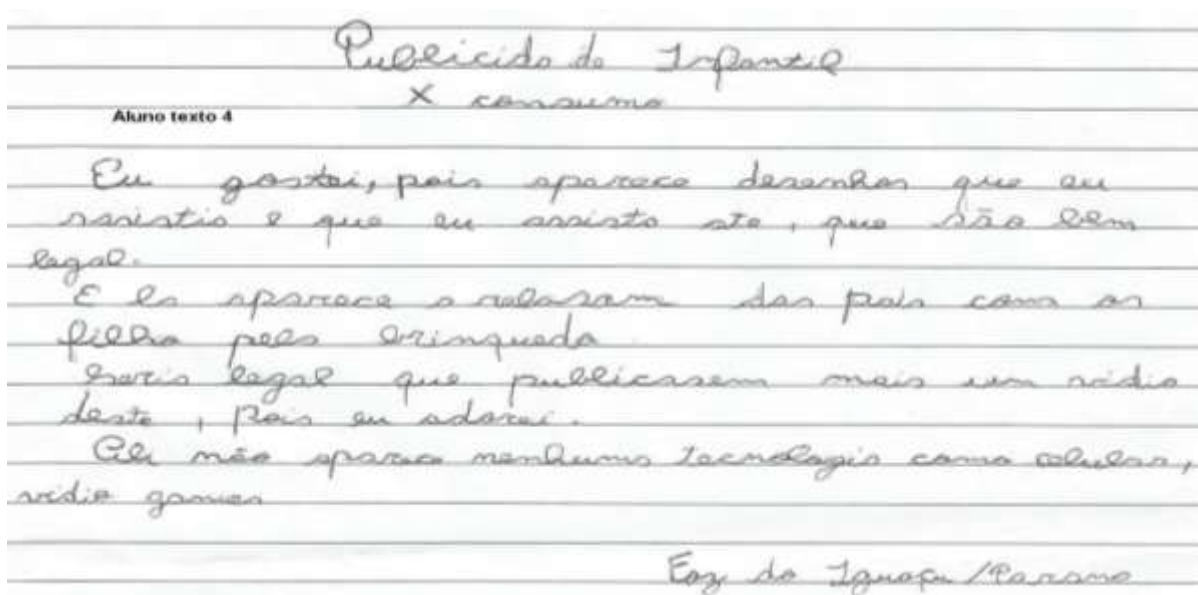 Publicida da Infantil
X consumo
Aluno texto 4
Eu gostei, pois aparece desenhos que eu
assistia e que eu assisto ate, que são bem
legal.
E la aparece a relasam dos pais com os
filho pelo brinquedo
Seria legal que publicasem mais um vidio
deste, pois eu adorei.
Ali não aparece nenhuma tecnologia como celular,
vidio games
Foz do Iguaçu/Parana